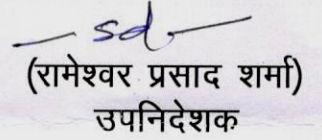 sd
(रामेश्वर प्रसाद शर्मा)
उपनिदेशक